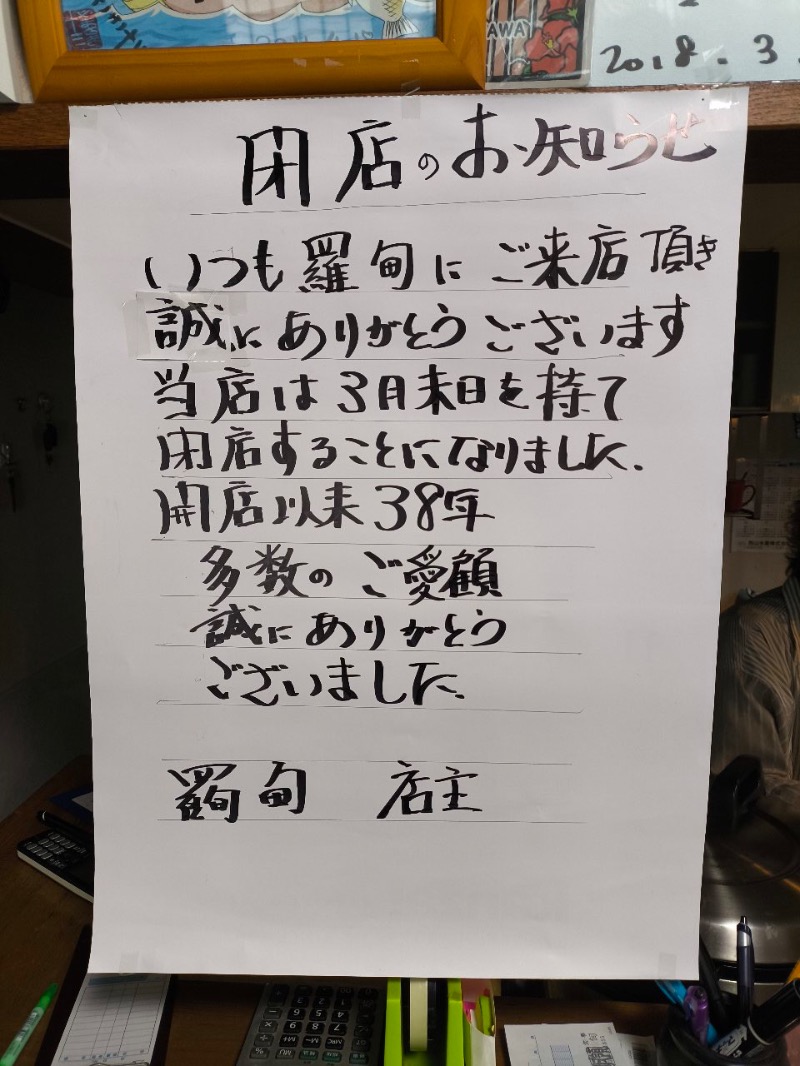 AWA
2018.3.
閉店のお知らせ
いつも羅甸にご来店頂き
誠にありがとうございます
当店は3月末日を持て
閉店することになりました.
開店以来38年
多数のご愛顧
誠にありがとう
ございました.
甸 店主